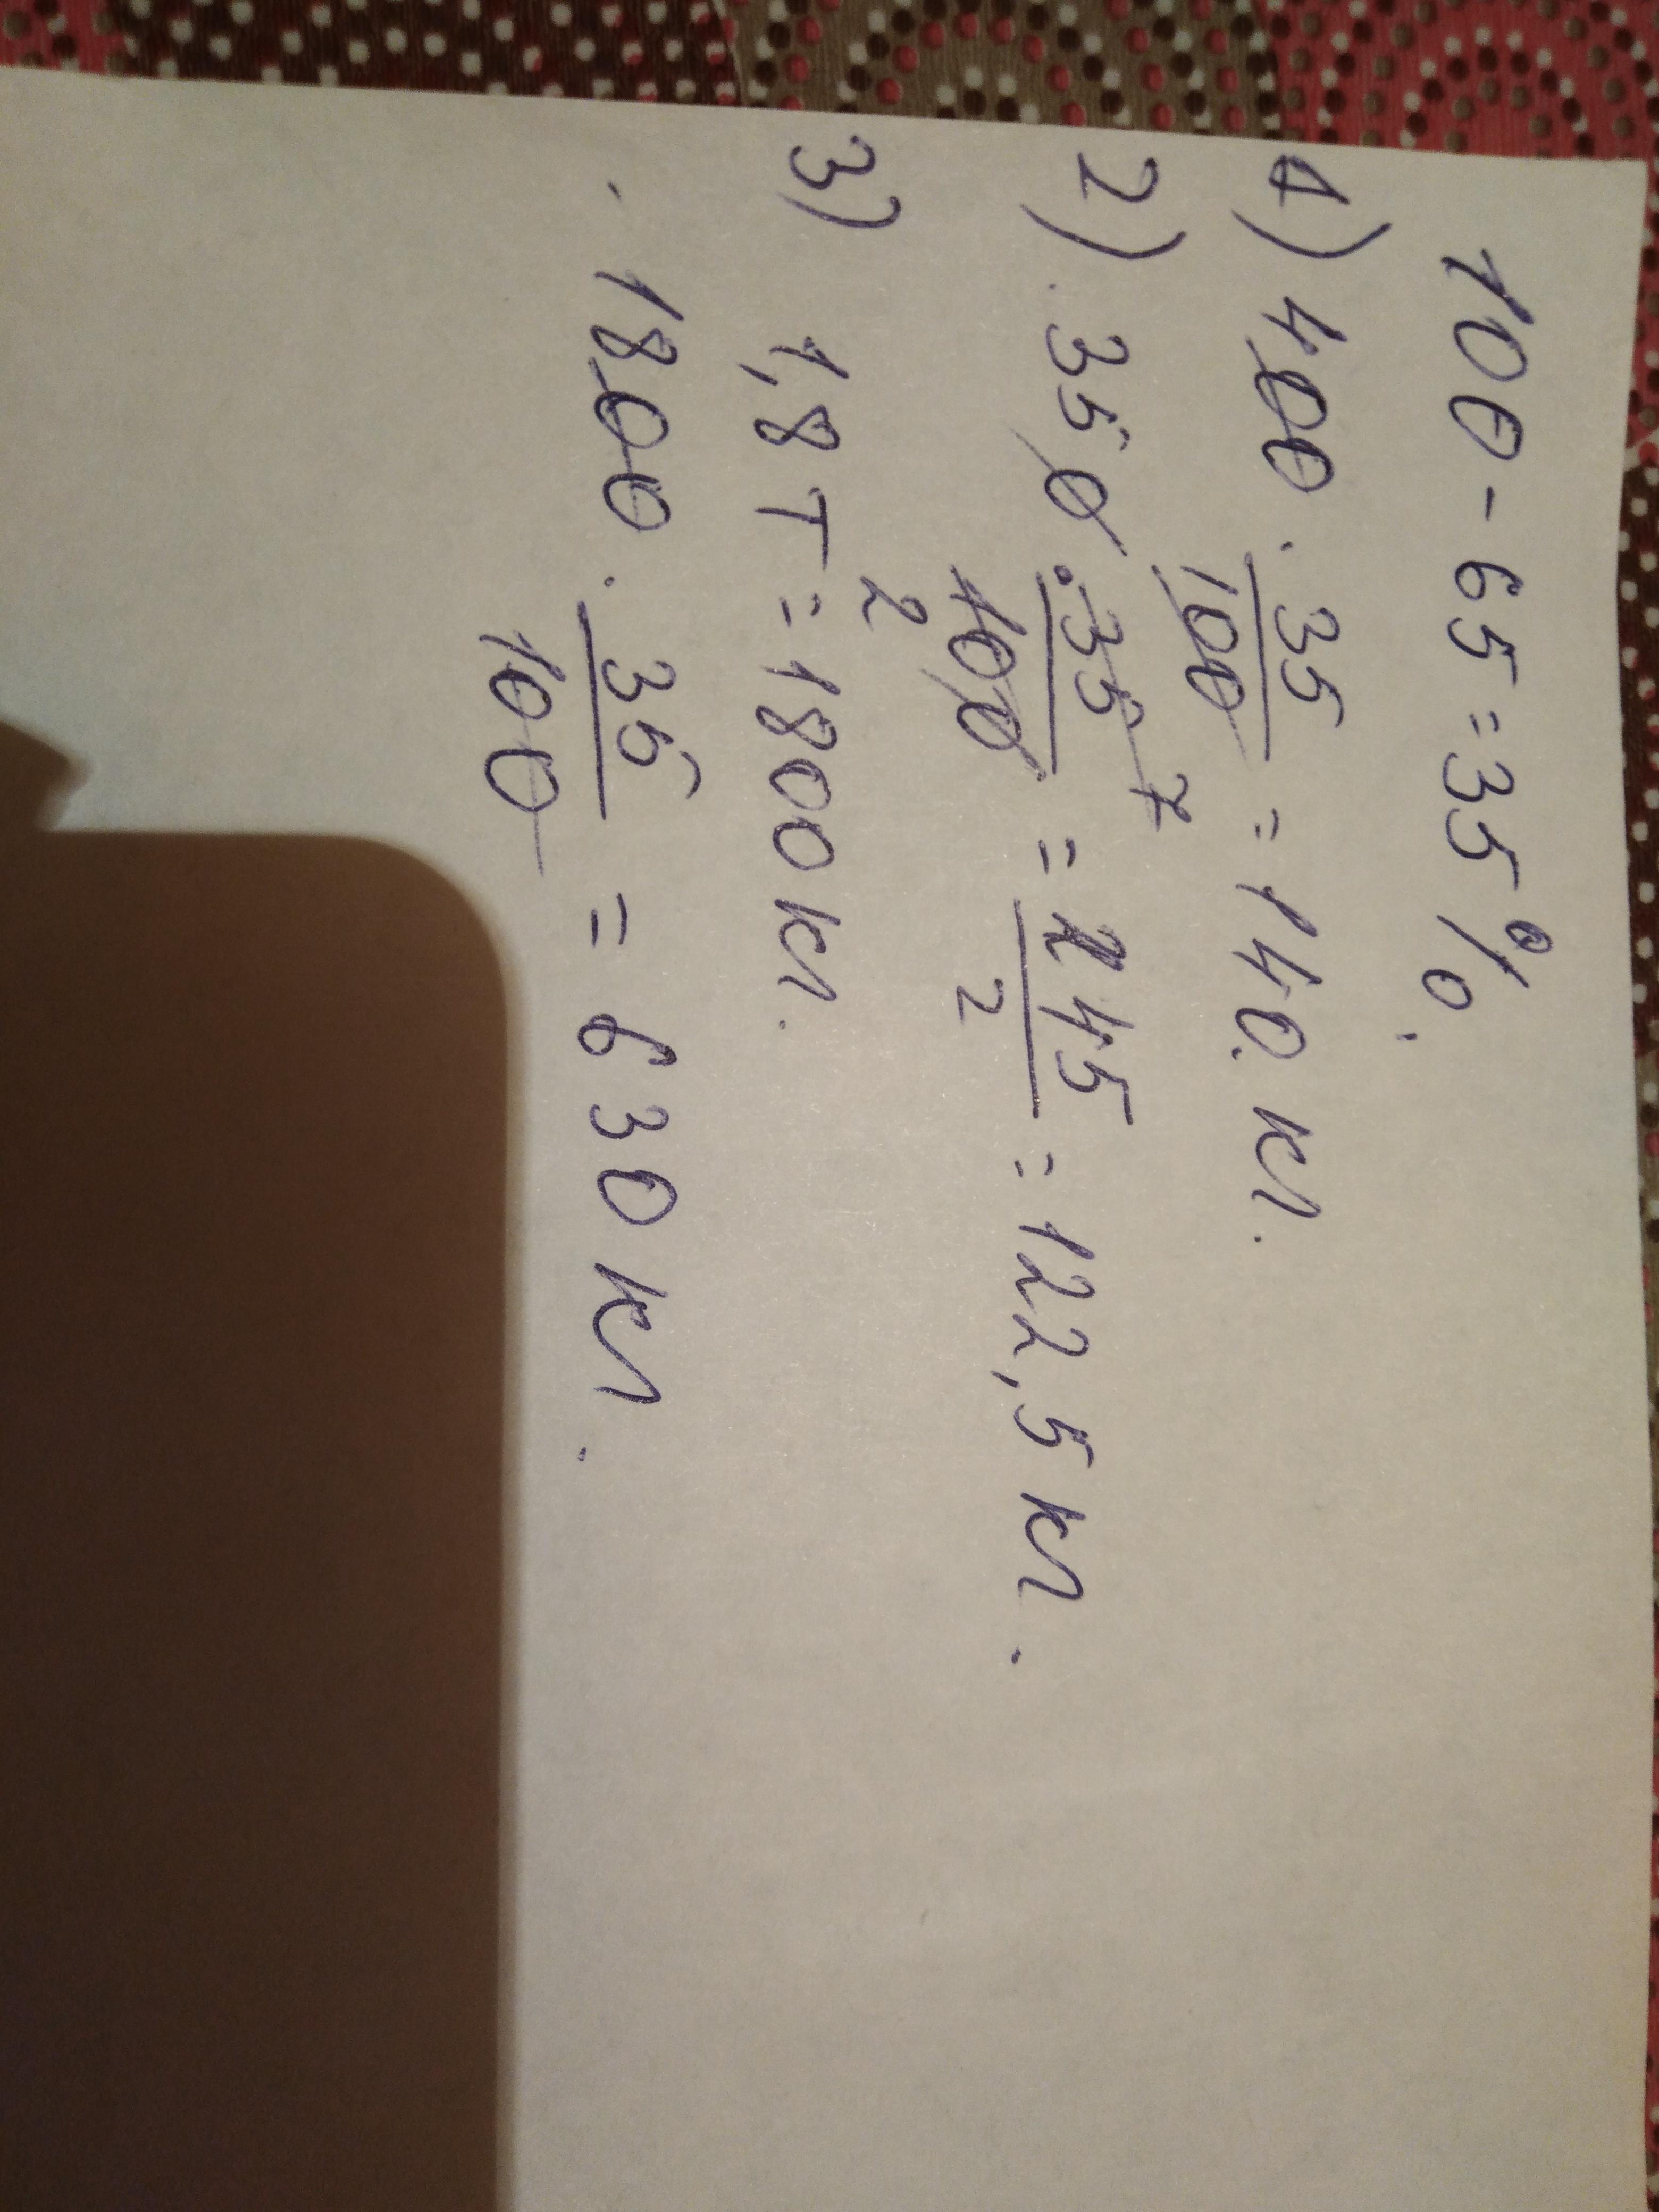 100 - 65 = 35%.
1) 400 · 35/100 = 140 кг.
2) 350 · 35 7/100 2 = 245/2 = 122,5 кг.
3) 1,8 т = 1800 кг.
· 1800 · 35/100 = 630 кг.